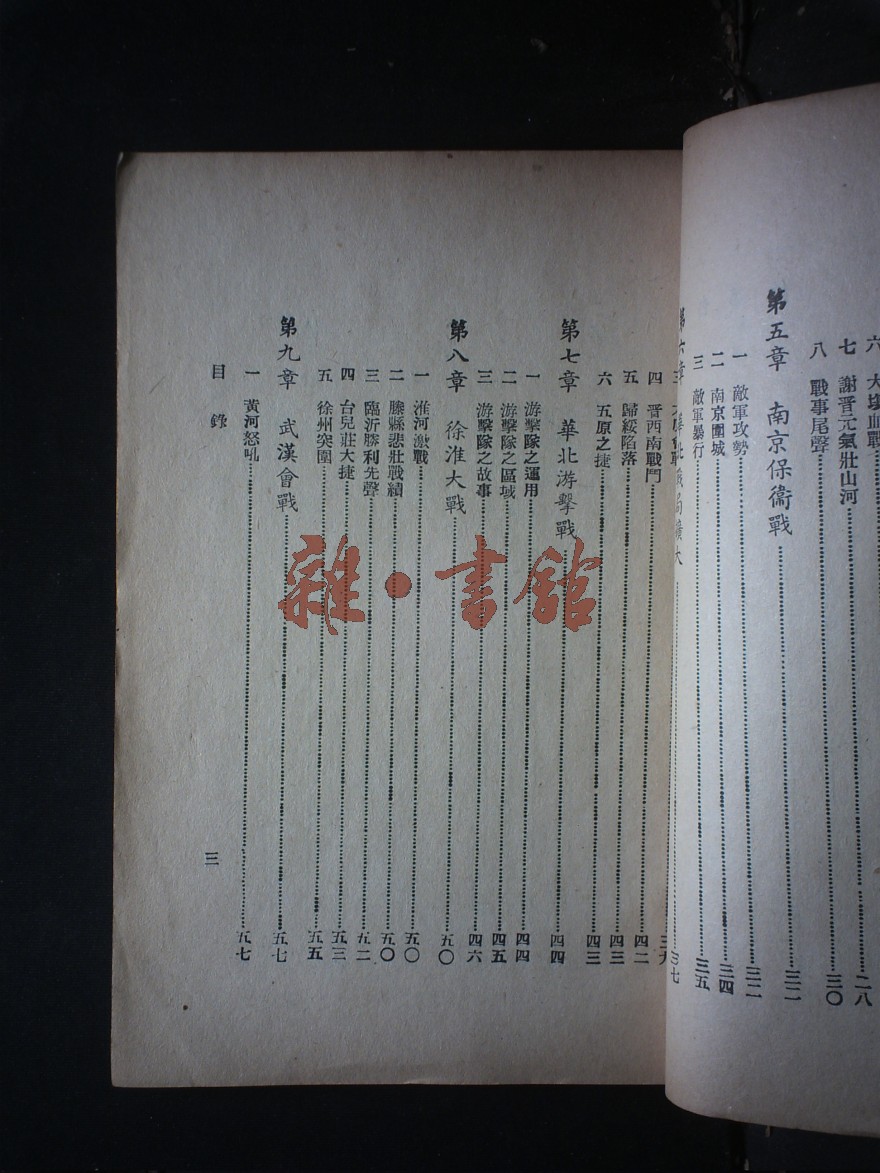 六 大塲血戰……二八
七 謝晋元氣壯山河……三〇
八 戰事尾聲……三〇
第五章 南京保衞戰……三二
一 敵軍攻勢……三二
二 南京圍城……三四
三 敵軍暴行……三五
第六章 華北戰局擴大……三七
三九
四 晋西南戰鬥……四二
五 歸綏陷落……四三
六 五原之捷……四三
第七章 華北游擊戰……四四
一 游擊隊之運用……四四
二 游擊隊之區域……四五
三 游擊隊之故事……四六
第八章 徐淮大戰……五〇
一 淮河激戰……五〇
二 滕縣悲壯戰績……五〇
三 臨沂勝利先聲……五二
四 台兒莊大捷……五三
五 徐州突圍……五五
第九章 武漢會戰……五七
一 黃河怒吼……五七
目錄 三
雜·書館